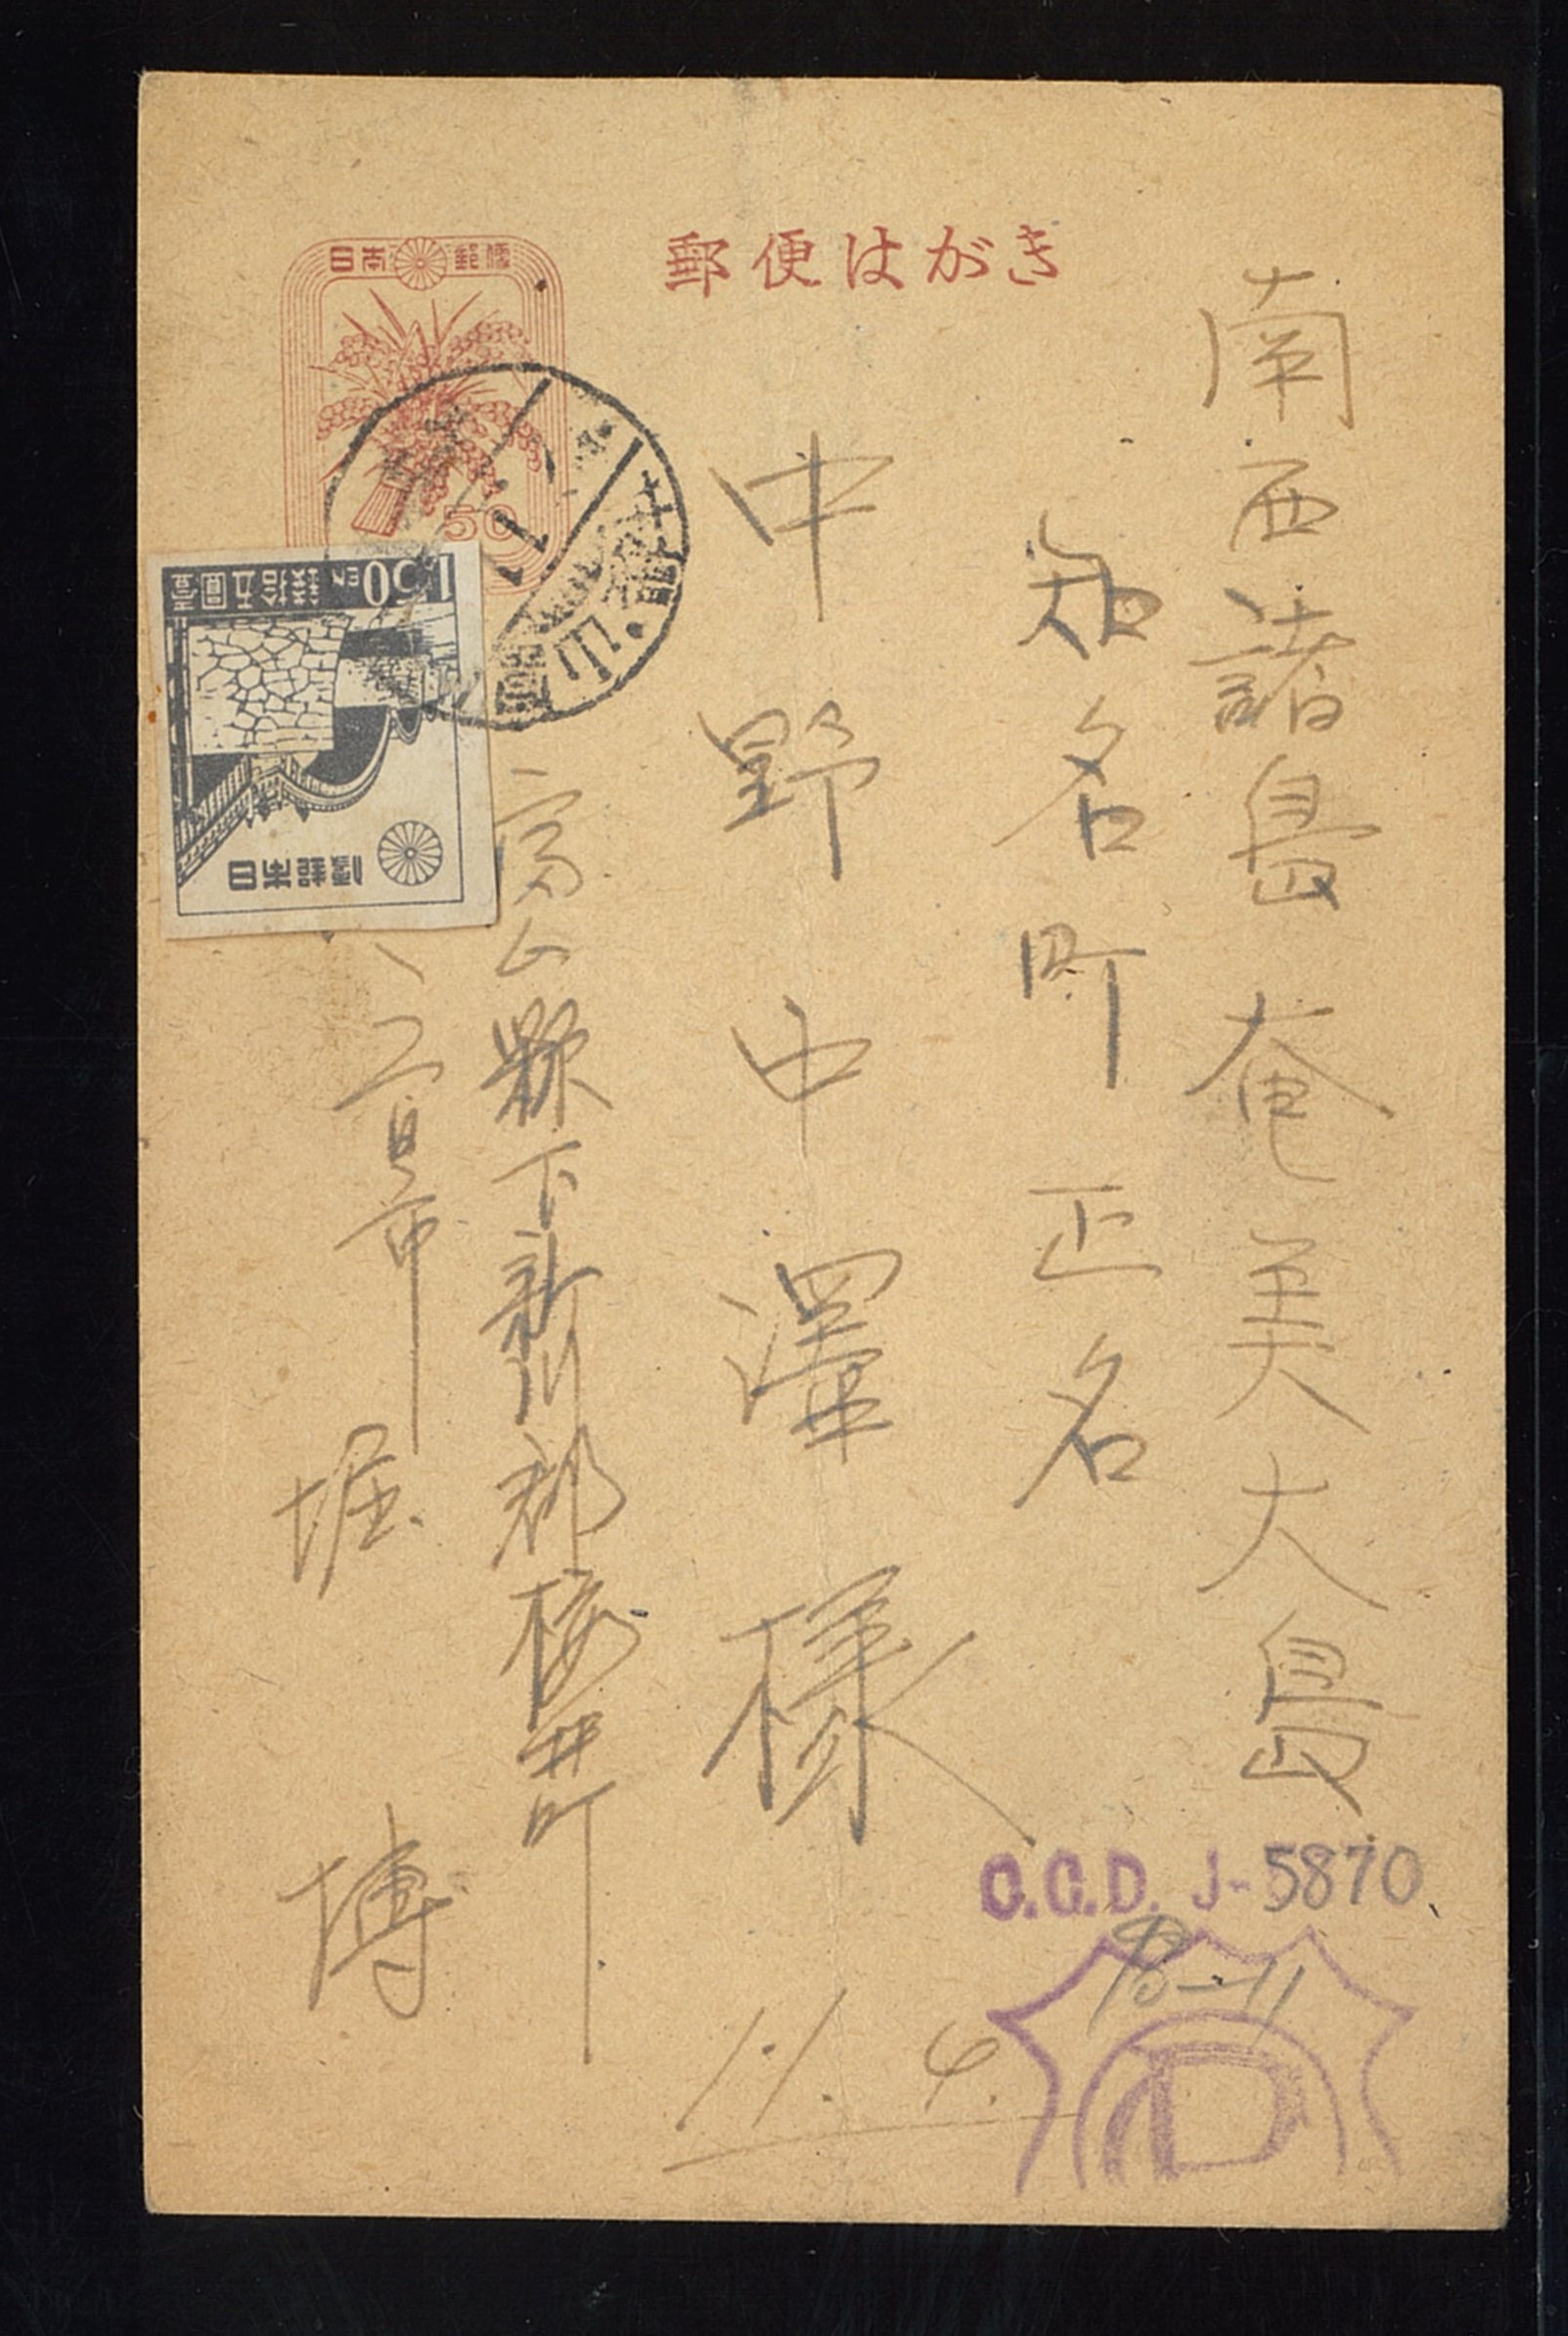 郵便はがき
日本郵便
50
1.50 EN
壹圓五拾錢
日本郵便
南西諸島奄美大島
知名町正名
中野中澤様
富山縣下新川郡桜井町
三日市
堀 博
11. 4.
C.C.D. J-5870